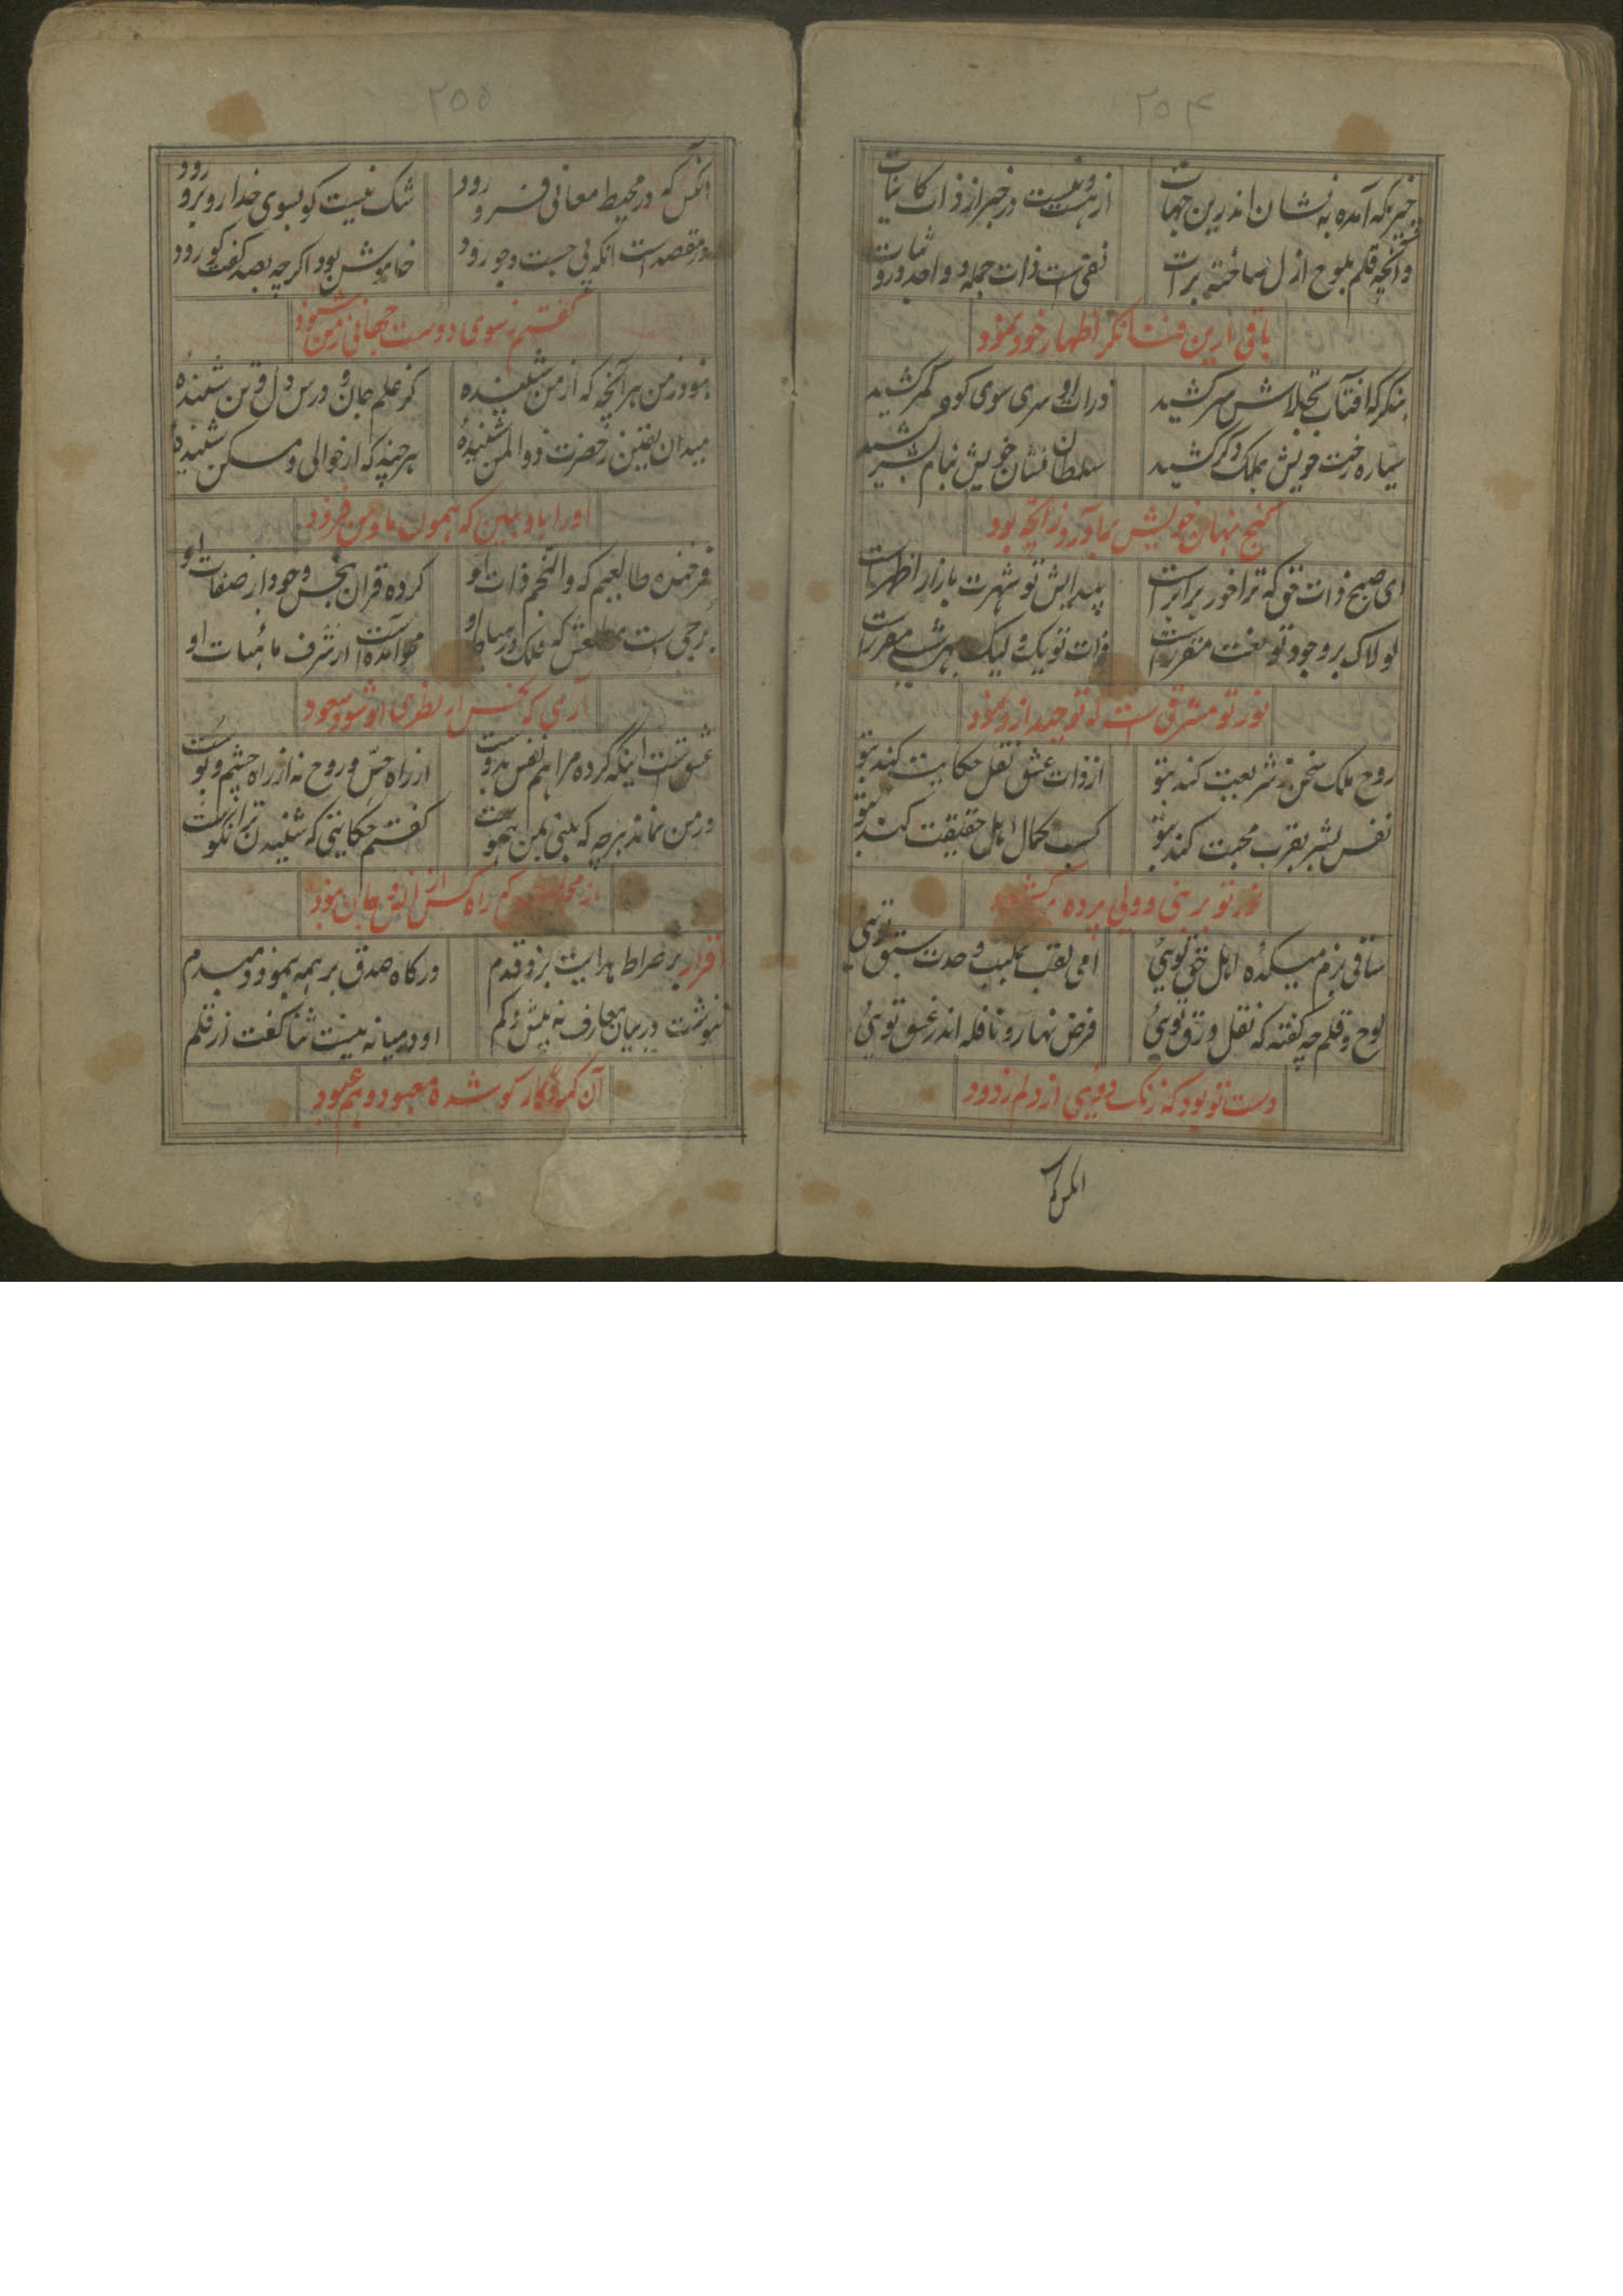 ۲۵۴
چیزیکه آمده به نشان اندرین جهان از هست و نیست در خبر از ذات کاینات
وانچه قلم بلوح ازل ساخته برات نفی است ذات جمله و واحد درو ثبات
باقی ازین فنا نگر اظهار خود نمود
بنگر که افتاب تجلاش سر کشید ذرات او سری سوی کوه کمر کشید
سیاره رخت خویش بملک دگر کشید سلطان نشان خویش بنام بشر کشید
گنج نهان خویش بما آورد زانچه بود
ای صبح ذات حق که ترا خور برابرست پیدایش تو شهرت بازار اظهرست
لولاک بر وجود تو نعت مقررست ذات تو یک و لیک بهر شی مقررست
نور تو مشرقی است که توحید ازو نمود
روح ملک سخن ز شریعت کند بتو از ذات عشق نقل حکایت کند بتو
نفس بشر بقرب محبت کند بتو کسب کمال اهل حقیقت کند بتو
نور تو بر نبی و ولی پرده
ساقی بزم میکدهٔ اهل حق توئی امی لقب بمکتب وحدت سبق توئی
لوح و قلم چه گفته که نقل ورق توئی فرض نهار و نافله اندر غسق توئی
دست تو بود که زنگ دوئی از دلم زدود
انکس که
۲۵۵
انکس که در محیط معانی فرو رود شک نیست کو بسوی خدا روبرو رود
در مقصد است انکه پی جست و جو رود خاموش بود اگرچه بصد گفت گو رود
گفتم ز سوی دوست جهانی ز من شنود
نبود ز من هر آنچه که از من شنیدهٔ کز علم جان و درس دل و تن شنیدهٔ
میدان یقین ز حضرت ذوالمن شنیدهٔ هرچند که از خوالی و مسکن شنیدهٔ
او را باو ببین که همون ما و من فزود
فرخنده طالعیم که والنجم ذات او کرده قران نحس وجود از صفات او
برجی است که فلک در او محو آمده است از شرف مائیات او
آری که نحس از نظری او شود سعود
عشق تست اینکه کرده مرا هم نفس بدوست از راه حس و روح نه از راه چشم و پوست
در من نماند هرچه که بینی بمن هموست گفتم حکایتی که شنیدن ترا نکوست
از راه کس از ازو جان نمود
اقرار بر صراط هدایت بزد قدم درگاه صدق بر همه بنمود دمبدم
ننوشت در بیان معارف نه بیش و کم او در میانه نیست ثنا گفت از قلم
آن کمه و کار کو شده معبود و هم عبود